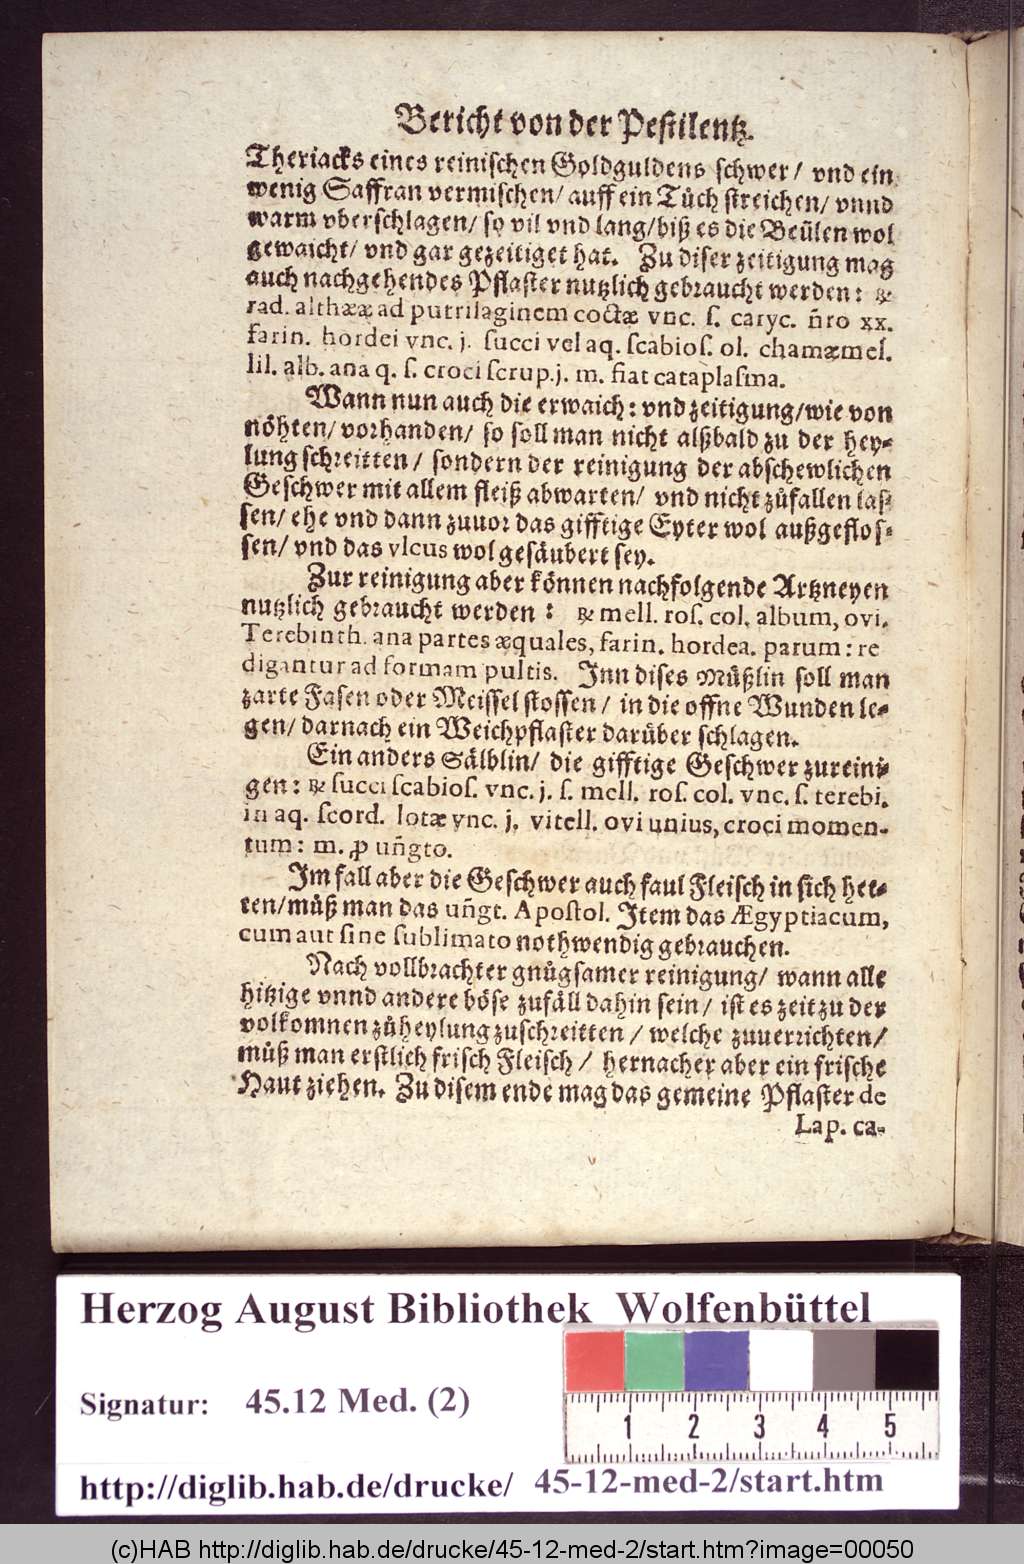 Bericht von der Pestilentz.
Theriacks eines reinischen Goldguldens schwer/ vnd ein
wenig Saffran vermischen/ auff ein Tůch streichen/ vnnd
warm vberschlagen/ so vil vnd lang/biß es die Beülen wol
gewaicht/ vnd gar gezeitiget hat. Zu diser zeitigung mag
auch nachgehendes Pflaster nutzlich gebraucht werden: ℞
rad. althææ ad putrilaginem coctæ vnc. ſ. caryc. ñro xx.
farin. hordei vnc. j. succi vel aq. scabioſ. ol. chamæmel.
lil. alb. ana q. ſ. croci scrup. j. m. fiat cataplasma.
Wann nun auch die erwaich: vnd zeitigung/wie von
nöhten/ vorhanden/ so soll man nicht alßbald zu der hey-
lung schreitten/ sondern der reinigung der abschewlichen
Geschwer mit allem fleiß abwarten/ vnd nicht zůfallen las-
sen/ ehe vnd dann zuuor das gifftige Eyter wol außgeflos-
sen/ vnd das vlcus wol gesäubert sey.
Zur reinigung aber können nachfolgende Artzneyen
nutzlich gebraucht werden: ℞ mell. roſ. col. album, ovi.
Terebinth. ana partes æquales, farin. hordea. parum: re
digantur ad formam pultis. Inn dises Můßlin soll man
zarte Fasen oder Meissel stossen/ in die offne Wunden le-
gen/ darnach ein Weichpflaster darůber schlagen.
Ein anders Sälblin/ die gifftige Geschwer zureini-
gen: ℞ succi scabioſ. vnc. j. ſ. mell. roſ. col. vnc. ſ. terebi.
in aq. scord. lotæ vnc. j. vitell. ovi unius, croci momen-
tum: m. ꝓ uñgto.
Im fall aber die Geschwer auch faul Fleisch in sich het-
ten/můß man das uñgt. Apostol. Item das Ægyptiacum,
cum aut sine sublimato nothwendig gebrauchen.
Nach vollbrachter gnůgsamer reinigung/ wann alle
hitzige vnnd andere böse zufäll dahin sein/ ist es zeit zu der
volkomnen zůheylung zuschreitten/ welche zuuerrichten/
můß man erstlich frisch Fleisch/ hernacher aber ein frische
Haut ziehen. Zu disem ende mag das gemeine Pflaster de
Lap. ca-
Herzog August Bibliothek Wolfenbüttel
Signatur: 45.12 Med. (2)
1 2 3 4 5
http://diglib.hab.de/drucke/ 45-12-med-2/start.htm
(c)HAB http://diglib.hab.de/drucke/45-12-med-2/start.htm?image=00050